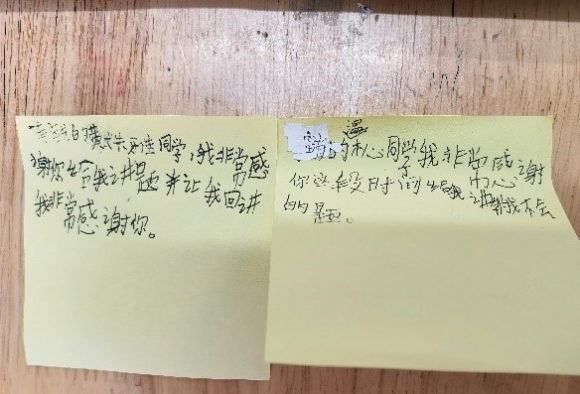 的黄 同学,我非常感
谢你给我讲题并让我回讲
我非常感谢你。
温
的 心同学我非常感谢
子
你这段时间给我 心
讲我不会
的题。